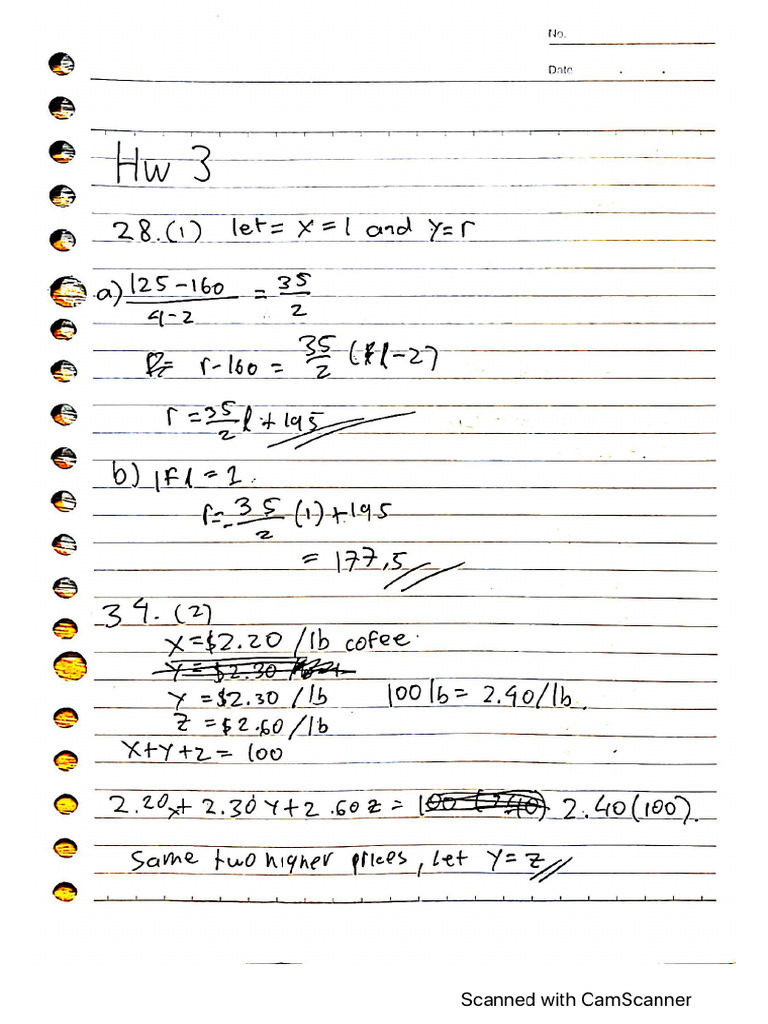 No.
Date . .
Hw 3
28.(1) let = x = l and y=r
a) 125-160 / 4-2 = 35/2
r-160 = 35/2 (l-2)
r = 35/2 l + 195
b) IF l = 1.
r=-35/2 (1)+195
= 177,5
34. (2)
x=$2.20 /lb cofee.
Y = $2.30
Y =$2.30 /lb 100 lb = 2.40/lb.
Z =$2.60/lb
X+Y+Z = 100
2.20x+ 2.30Y+2.60z = 2.40(100).
Same two higher prices, let Y=Z
Scanned with CamScanner